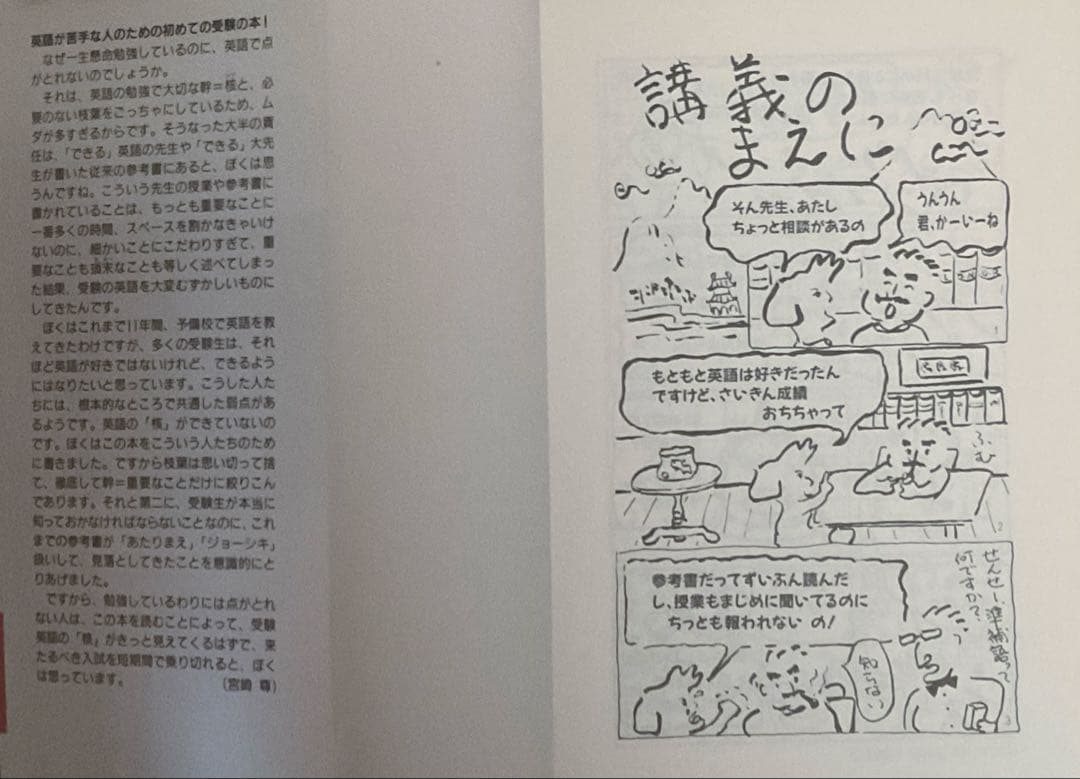 英語が苦手な人のための初めての受験の本！
なぜ一生懸命勉強しているのに、英語で点
がとれないのでしょうか。
それは、英語の勉強で大切な幹＝核と、必
要のない枝葉をごっちゃにしているため、ム
ダが多すぎるからです。そうなった大半の責
任は、「できる」英語の先生や「できる」大先
生が書いた従来の参考書にあると、ぼくは思
うんですね。こういう先生の授業や参考書に
書かれていることは、もっとも重要なことに
一番多くの時間、スペースを割かなきゃいけ
ないのに、細かいことにこだわりすぎて、重
要なことも瑣末なことも等しく述べてしまっ
た結果、受験の英語を大変むずかしいものに
してきたんです。
ぼくはこれまで11年間、予備校で英語を教
えてきたわけですが、多くの受験生は、それ
ほど英語が好きではないけれど、できるよう
にはなりたいと思っています。こうした人た
ちには、根本的なところで共通した弱点があ
るようです。英語の「核」ができていないの
です。ぼくはこの本をこういう人たちのため
に書きました。ですから枝葉は思い切って捨
て、徹底して幹＝重要なことだけに絞りこん
であります。それと第二に、受験生が本当に
知っておかなければならないことなのに、これ
までの参考書が「あたりまえ」「ジョーシキ」
扱いして、見落としてきたことを意識的にと
りあげました。
ですから、勉強しているわりには点がとれ
ない人は、この本を読むことによって、受験
英語の「核」がきっと見えてくるはずで、来
たるべき入試を短期間で乗り切れると、ぼく
は思っています。
（宮崎 尊）
講義の
まえに
そん先生、あたし
ちょっと相談があるの
うんうん
君、かーいーね
1
もともと英語は好きだったん
ですけど、さいきん成績
おちちゃって
ふむ
2
参考書だってずいぶん読んだ
し、授業もまじめに聞いてるのに
ちっとも報われない の！
知らない
せんせー、準補語って
何ですか？
3